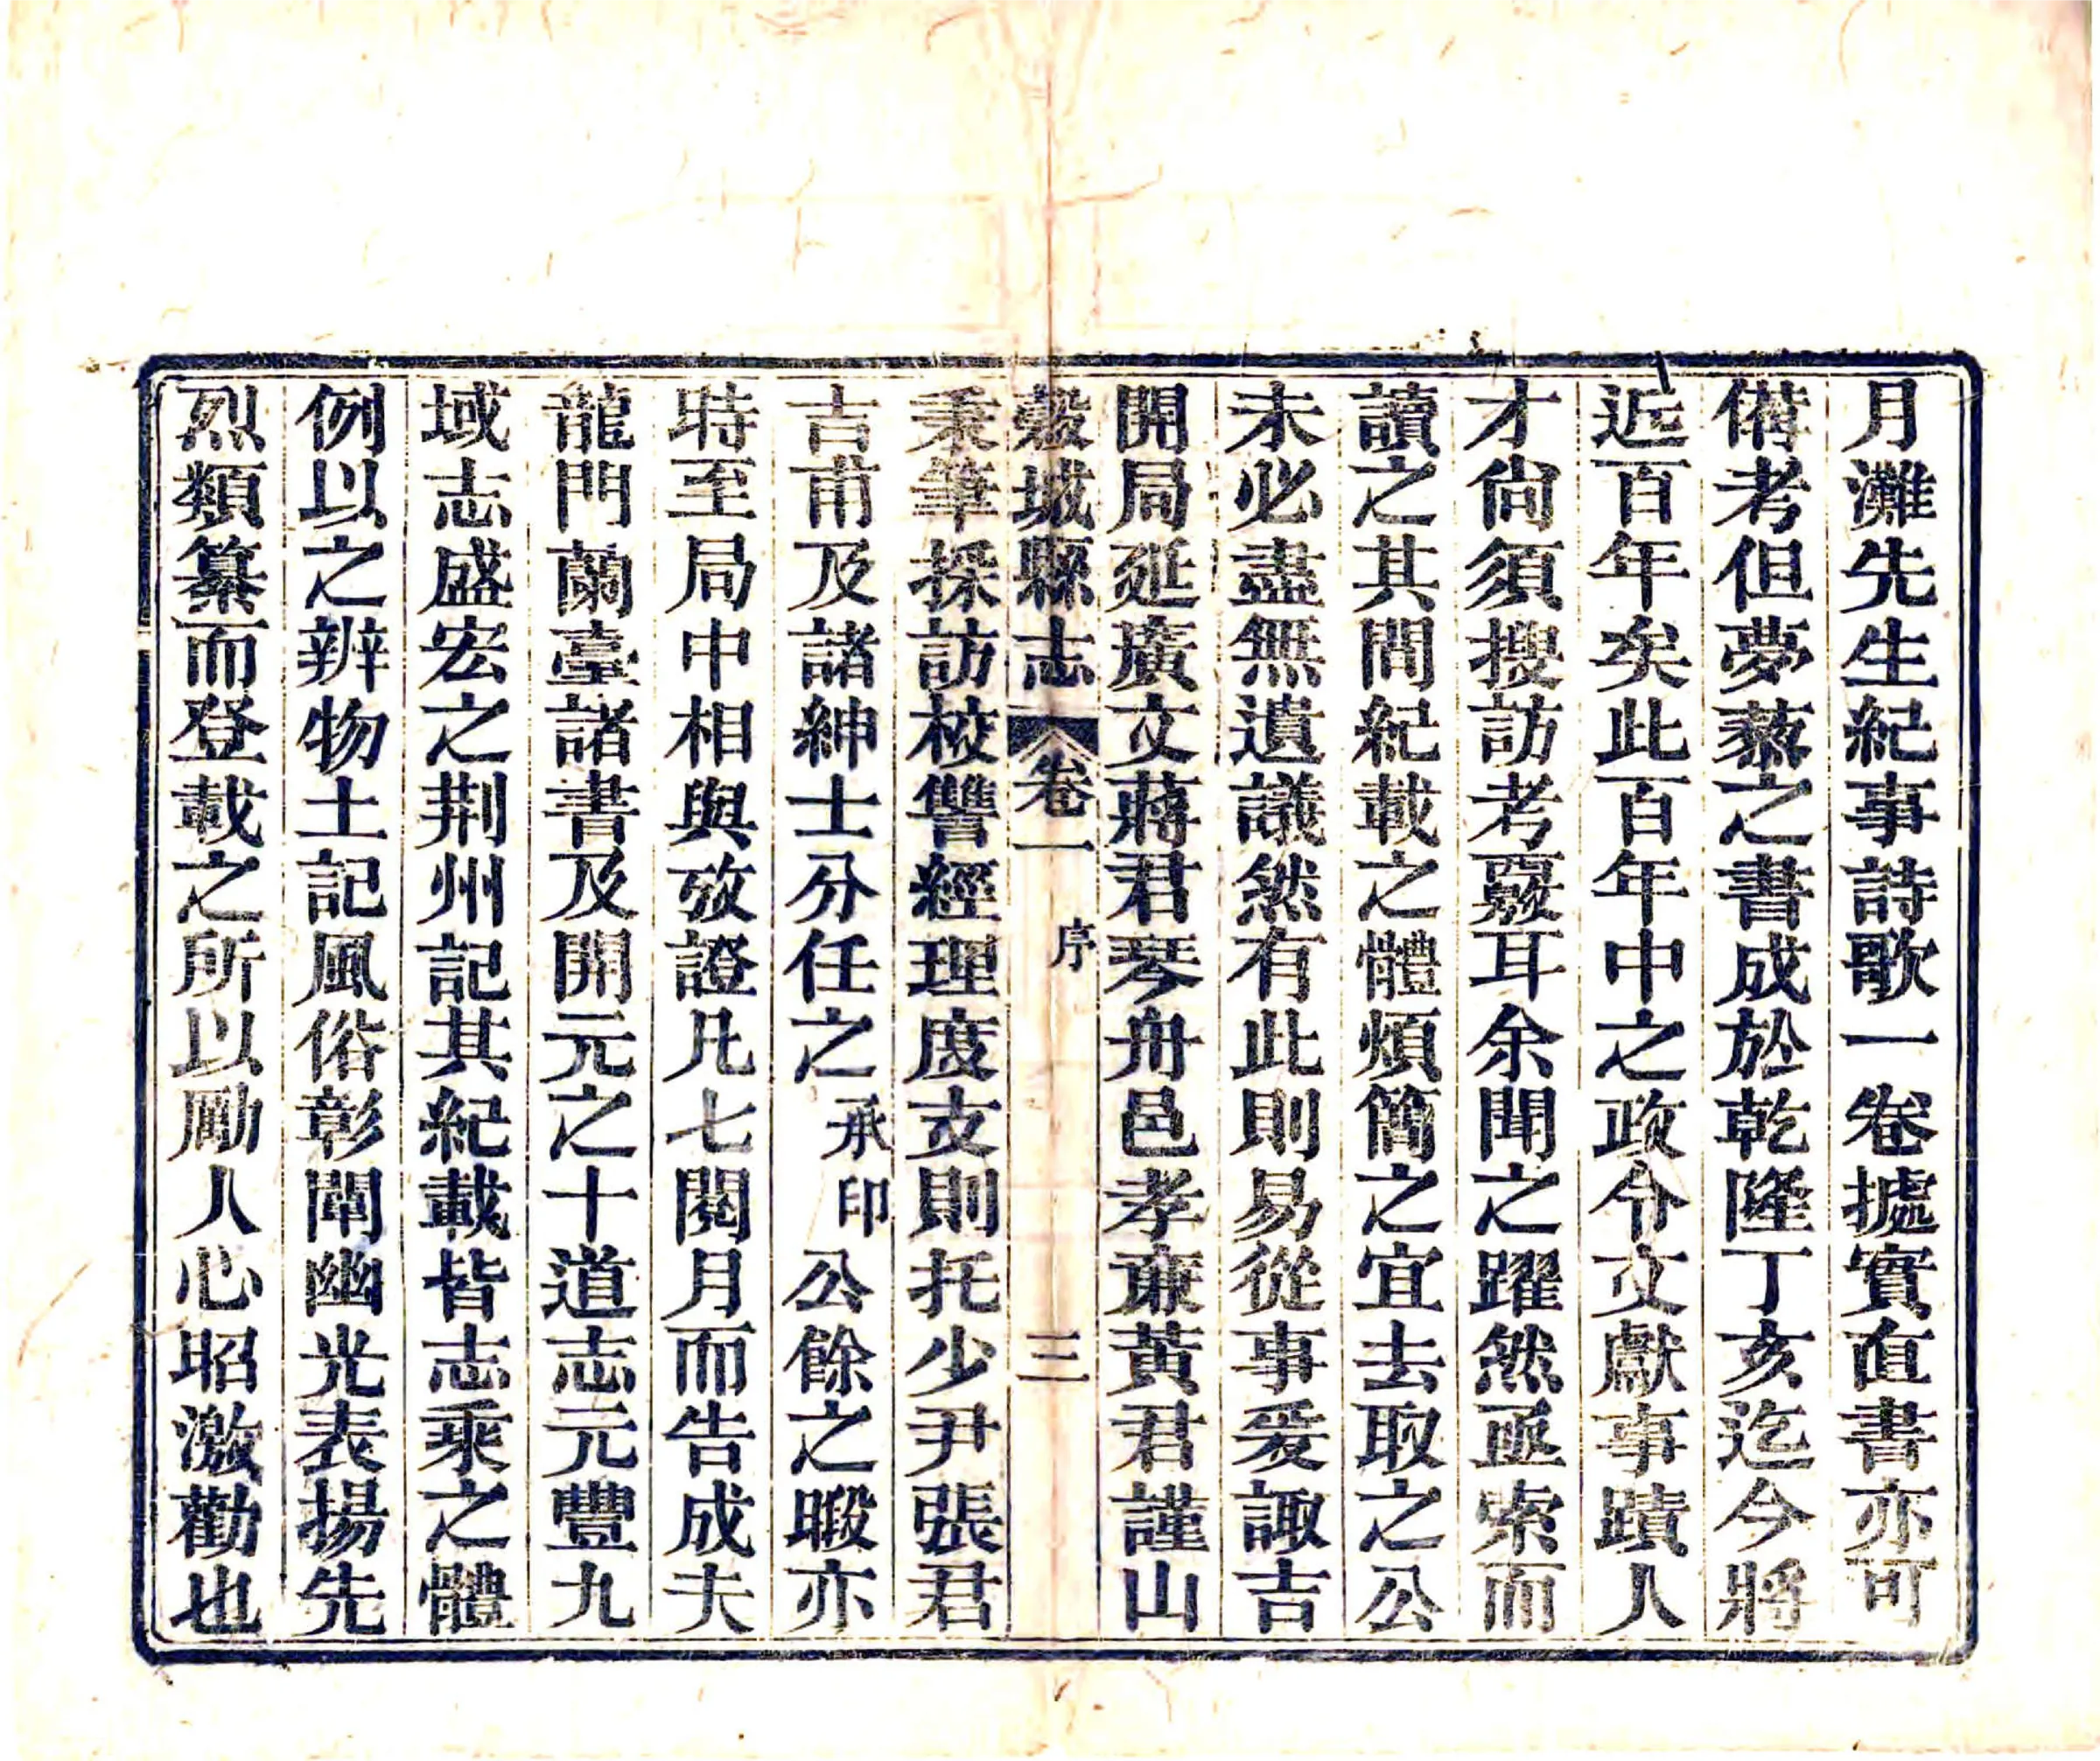 月灘先生紀事詩歌一卷據實直書亦可
備考但夢藜之書成於乾隆丁亥迄今將
近百年矣此百年中之政令文獻事蹟人
才尙須搜訪考覈耳余聞之躍然亟索而
讀之其間紀載之體煩簡之宜去取之公
未必盡無遺議然有此則易從事爰諏吉
開局延廣文蔣君琴舟邑孝亷黃君謹山
穀城縣志 卷一 序 三
秉筆採訪校讐經理度支則托少尹張君
吉甫及諸紳士分任之承印公餘之暇亦
時至局中相與攷證凡七閱月而告成夫
龍門蘭臺諸書及開元之十道志元豐九
域志盛宏之荆州記其紀載皆志乘之體
例以之辨物土記風俗彰闡幽光表揚先
烈類纂而登載之所以勵人心昭激勸也